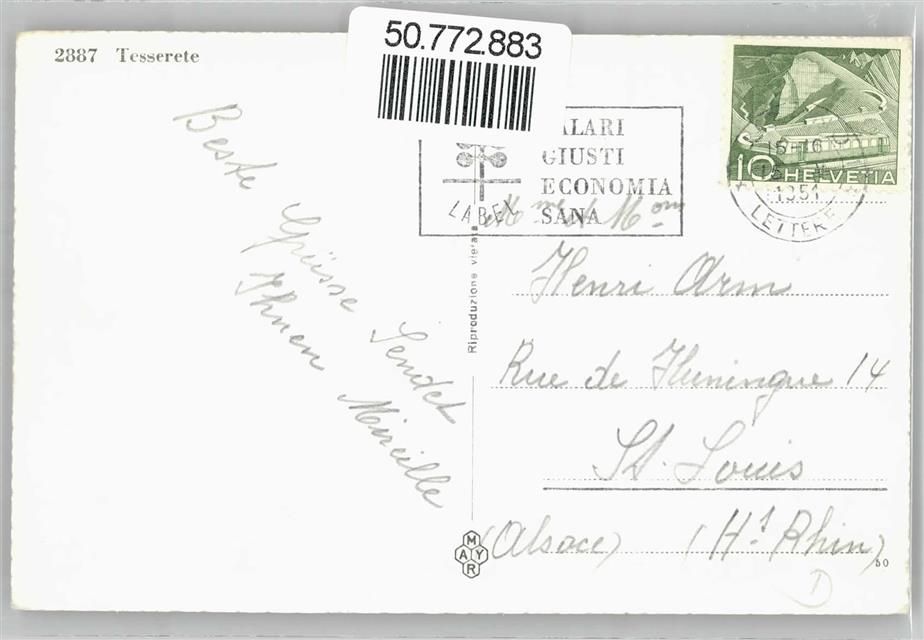 2887 Tesserete
50.772.883
SALARI
GIUSTI
ECONOMIA
SANA
LABEL
10 HELVETIA
15-16
1951
LETTERE
Beste
Grüsse Sendet
Ihnen Mireille
Riproduzione vietata
Henri Arm
Rue de Huningue 14
St. Louis
(Alsace) (Ht Rhin)
MAYR
50